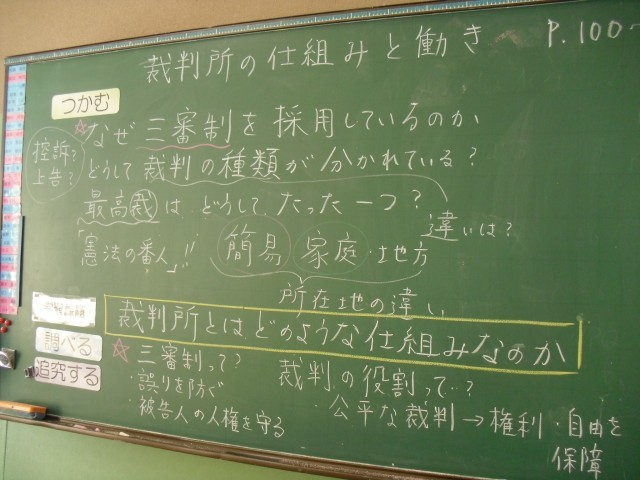 裁判所の仕組みと働き P.100~
つかむ
なぜ三審制を採用しているのか
控訴?
上告?
どうして裁判の種類が分かれている?
最高裁は どうして たった一つ?
「憲法の番人」!!
簡易 家庭・地方
違いは?
所在地の違い
裁判所とは、どのような仕組みなのか
調べる
追究する
三審制って?
誤りを防ぐ
・被告人の人権を守る
裁判の役割って?
・公平な裁判→権利・自由を
保障